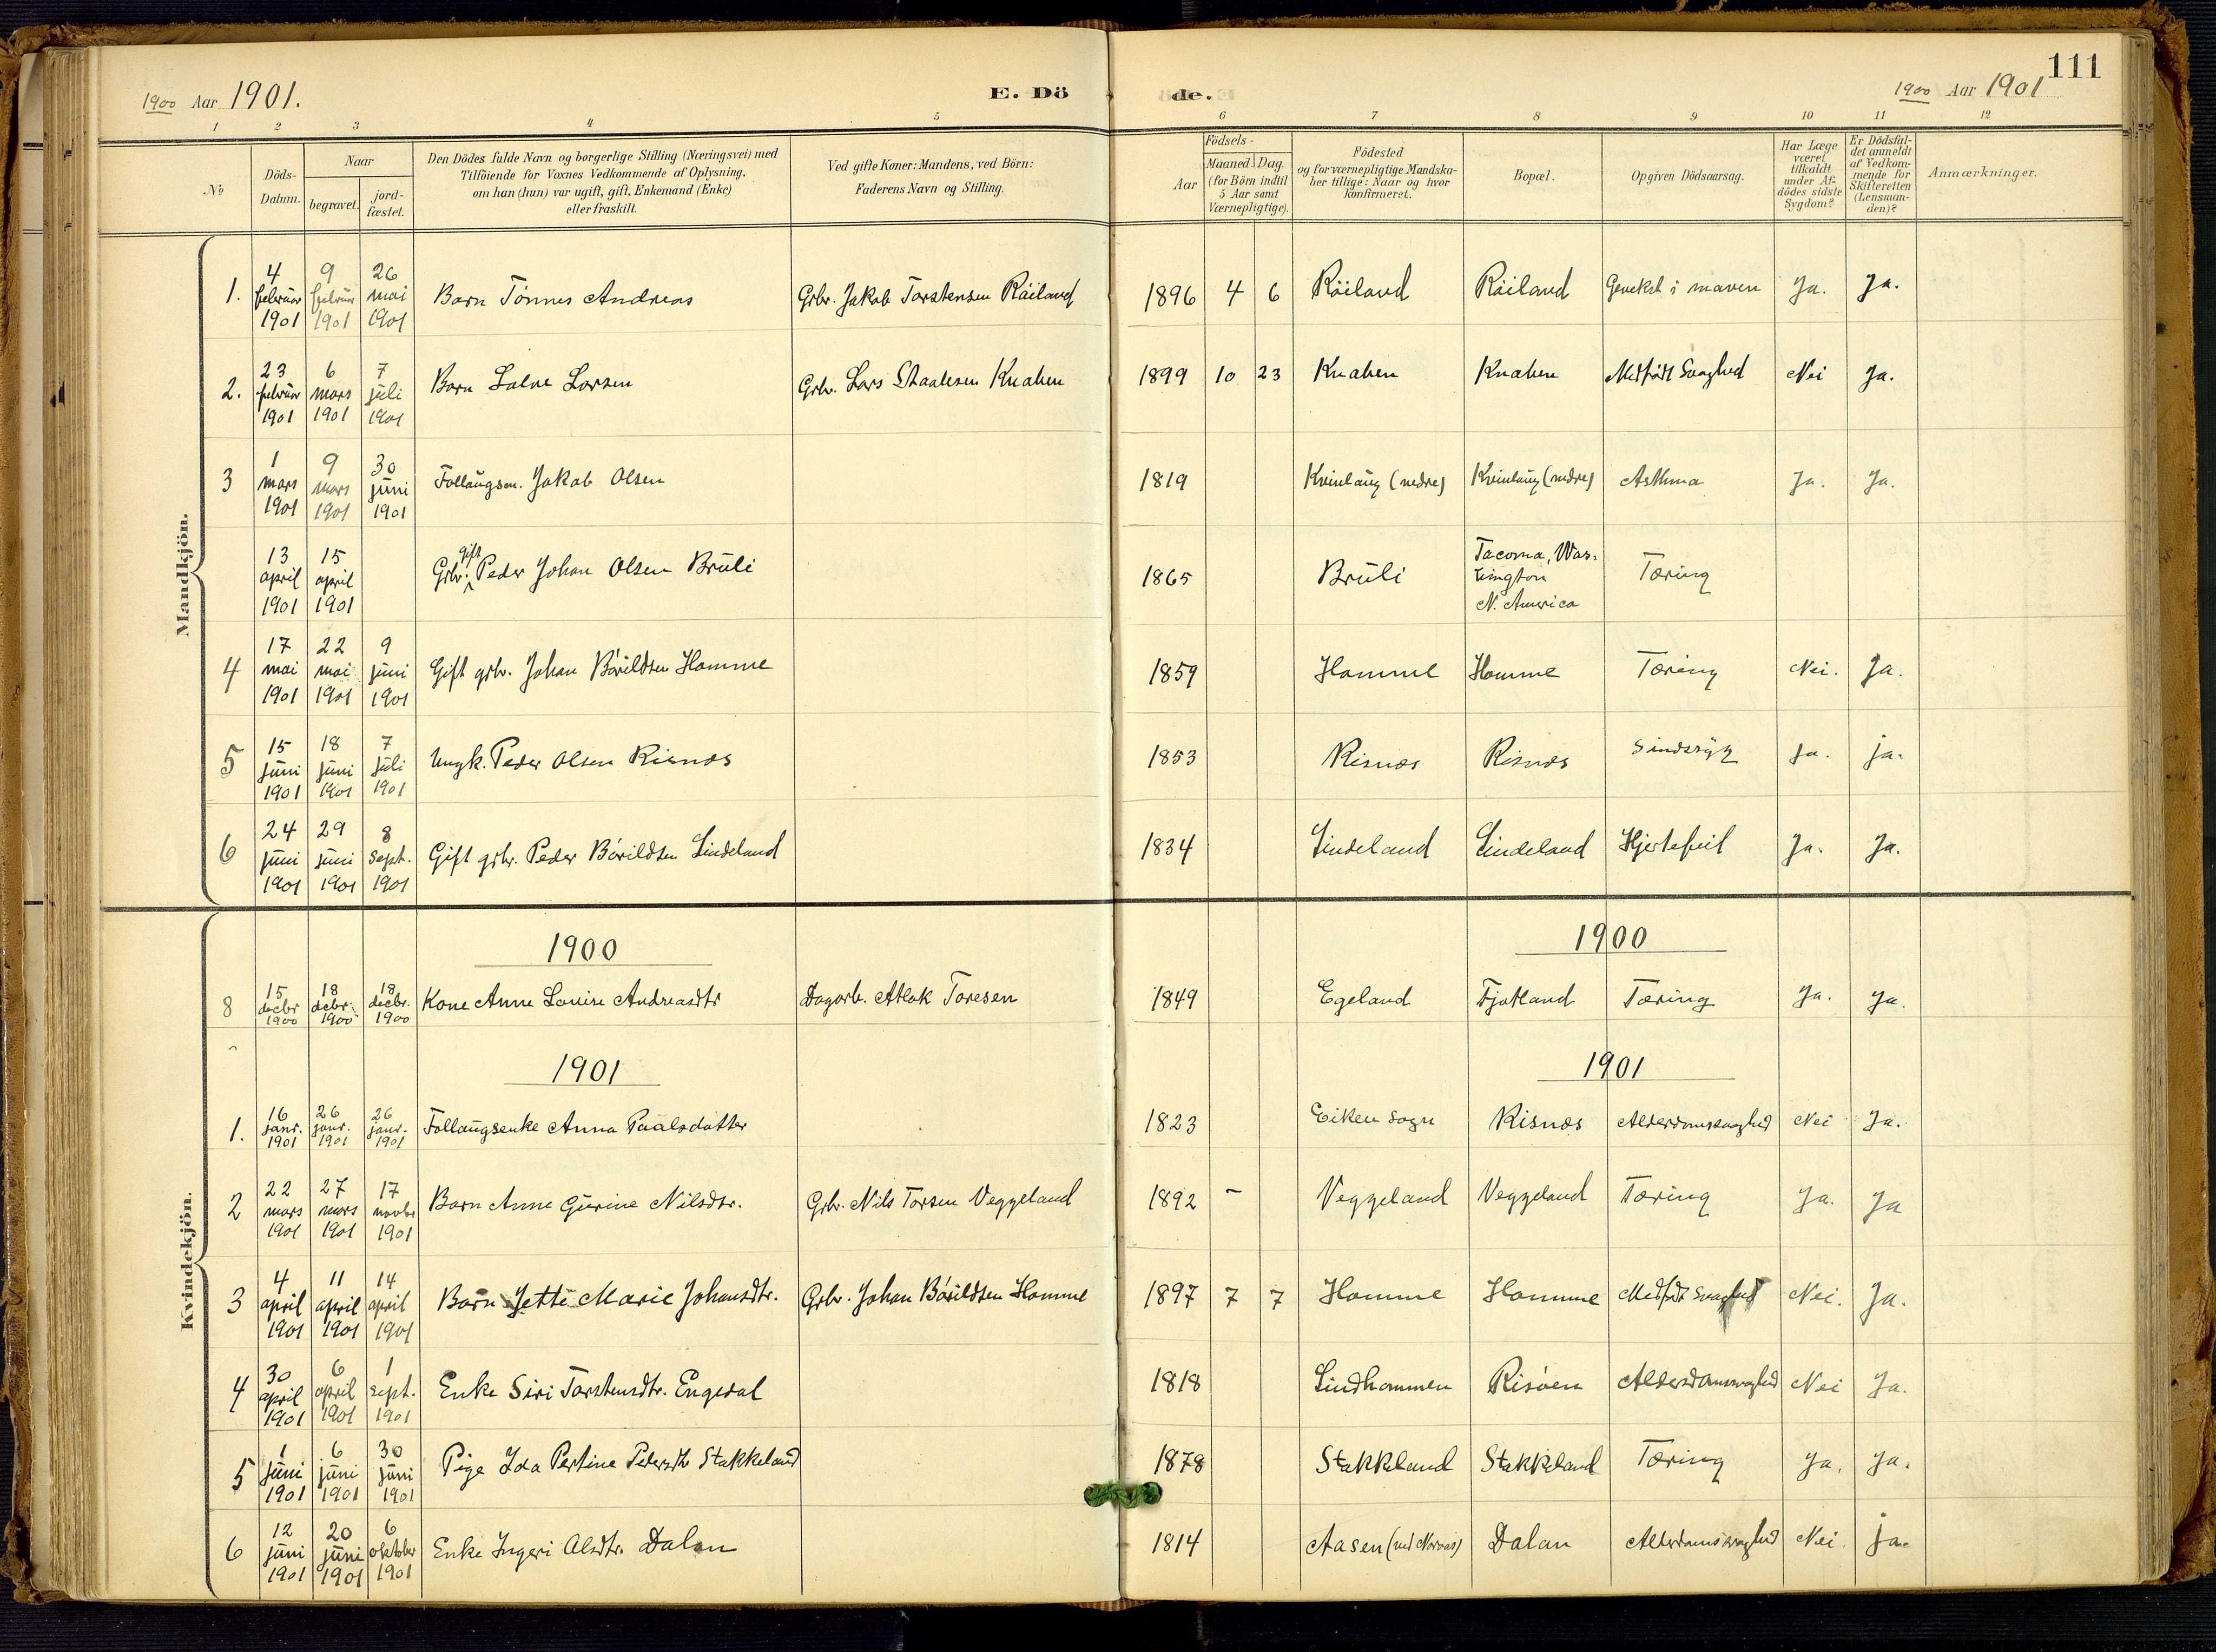 1900 Aar 1901.
E. Dö
de.
1900 Aar 1901
111
1 2 3 4 5 6 7 8 9 10 11 12
№
Döds-
Datum.
Naar
begravet.
jord-
fæstet.
Den Dödes fulde Navn og borgerlige Stilling (Næringsvei) med
Tilföiende for Voxnes Vedkommende af Oplysning,
om han (hun) var ugift, gift, Enkemand (Enke)
eller fraskilt.
Ved gifte Koner: Mandens, ved Börn:
Faderens Navn og Stilling.
Födsels-
Aar
Maaned.
Dag.
(for Börn indtil
5 Aar samt
Værnepligtige).
Födested
og for værnepligtige Mandska-
ber tillige: Naar og hvor
konfirmeret.
Bopæl.
Opgiven Dödsaarsag.
Har Læge
været
tilkaldt
under Af-
dödes sidste
Sygdom?
Er Dödsfal-
det anmeldt
af Vedkom-
mende for
Skifteretten
(Lensman-
den)?
Anmærkninger.
Mandkjön.
1. 4 februar 1901 9 februar 1901 26 mai 1901 Barn Tönnes Andreas Grbr. Jakob Torstensen Röiland 1896 4 6 Röiland Röiland i maven Ja. Ja.
2. 23 februar 1901 6 mars 1901 7 juli 1901 Barn Salve Larsen Grbr. Lars Staalesen Knaben 1899 10 23 Knaben Knaben Medfödt Svaghed Nei Ja.
3 1 mars 1901 9 mars 1901 30 juni 1901 Follaugsm. Jakob Olsen 1819 Kvinlaug (nedre) Kvinlaug (nedre) Asthma Ja. Ja.
13 april 1901 15 april 1901 Grbr. gift Peder Johan Olsen Brüli 1865 Brüli Tacoma, Was-
hington
N. America Tæring
4 17 mai 1901 22 mai 1901 9 juni 1901 Gift grbr. Johan Bórildsen Homme 1859 Homme Homme Tæring Nei. Ja.
5 15 juni 1901 18 juni 1901 7 juli 1901 Ungk. Peder Olsen Risnes 1853 Risnes Risnes Sindssyg Ja. ja.
6 24 juni 1901 29 juni 1901 8 sept. 1901 Gift grbr. Peder Bórildsen Lindeland 1834 Lindeland Lindeland Hjertefeil Ja. Ja.
Kvindekjön.
1900
1900
8 15 decbr 1900 18 decbr. 1900 18 decbr. 1900 Kone Anne Louise Andreasdtr Dagarb. Atlak Toresen 1849 Egeland Fjotland Tæring Ja. ja.
1901
1901
1. 16 janr. 1901 26 janr. 1901 26 janr. 1901 Follaugsenke Anna Paalsdatter 1823 Eiken Sogn Risnes Alderdomssvaghed Nei Ja.
2 22 mars 1901 27 mars 1901 17 novbr 1901 Barn Anne Gurine Nilsdtr. Grbr. Nils Torsen Veggeland 1892 - Veggeland Veggeland Tæring Ja. Ja
3 4 april 1901 11 april 1901 14 april 1901 Barn Jette Marie Johansdtr. Grbr. Johan Bórildsen Homme 1897 7 7 Homme Homme Medfødt Svaghed Nei. Ja.
4 30 april 1901 6 april 1901 1 sept. 1901 Enke Siri Torstensdtr. Engedal 1818 Lindhommen Risöen Alderdomssvaghed Nei Ja.
5 1 juni 1901 6 juni 1901 30 juni 1901 Pige Ida Pertine Pedersdtr Stakkeland 1878 Stakkeland Stakkeland Tæring Ja. Ja.
6 12 juni 1901 20 juni 1901 6 oktober 1901 Enke Ingeri Olsdtr. Dalen 1814 Aasen (ved Dalen Alderdomssvaghed Nei. ja.